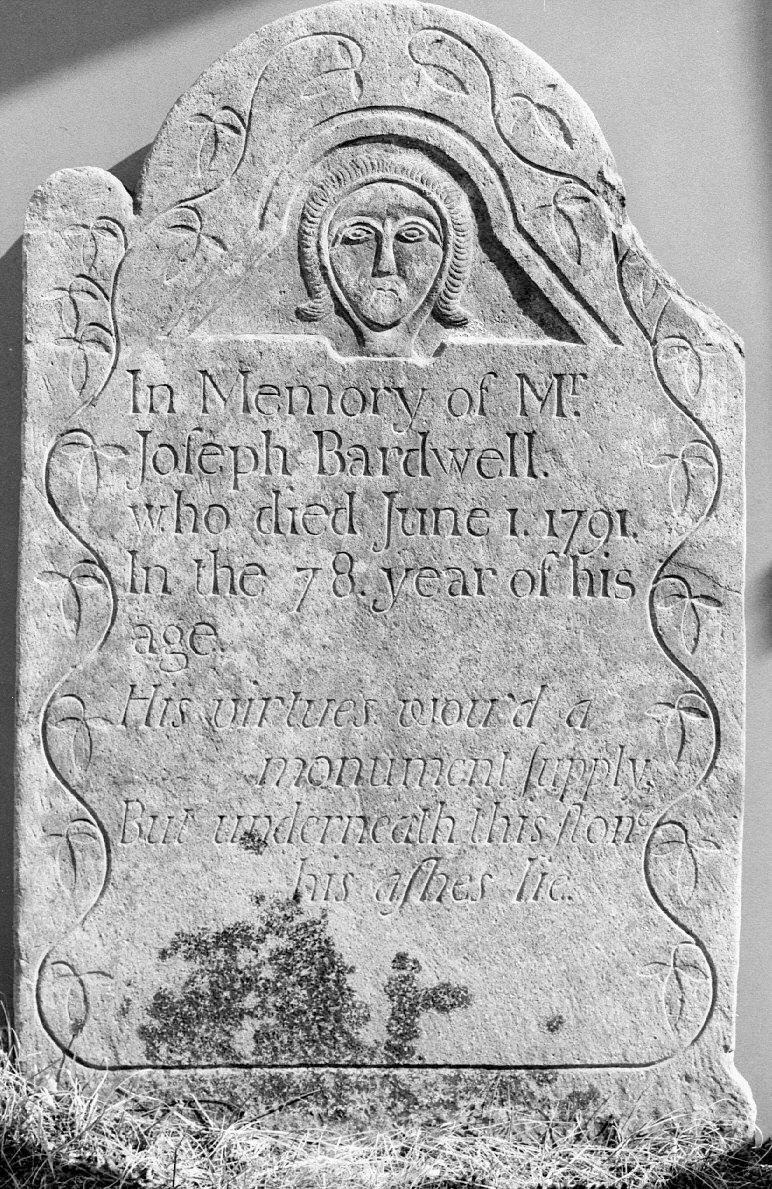 In Memory of Mr.
Joseph Bardwell.
who died June 1. 1791.
In the 78. year of his
age.
His virtues wou'd a
monument supply.
But underneath this stone
his ashes lie.